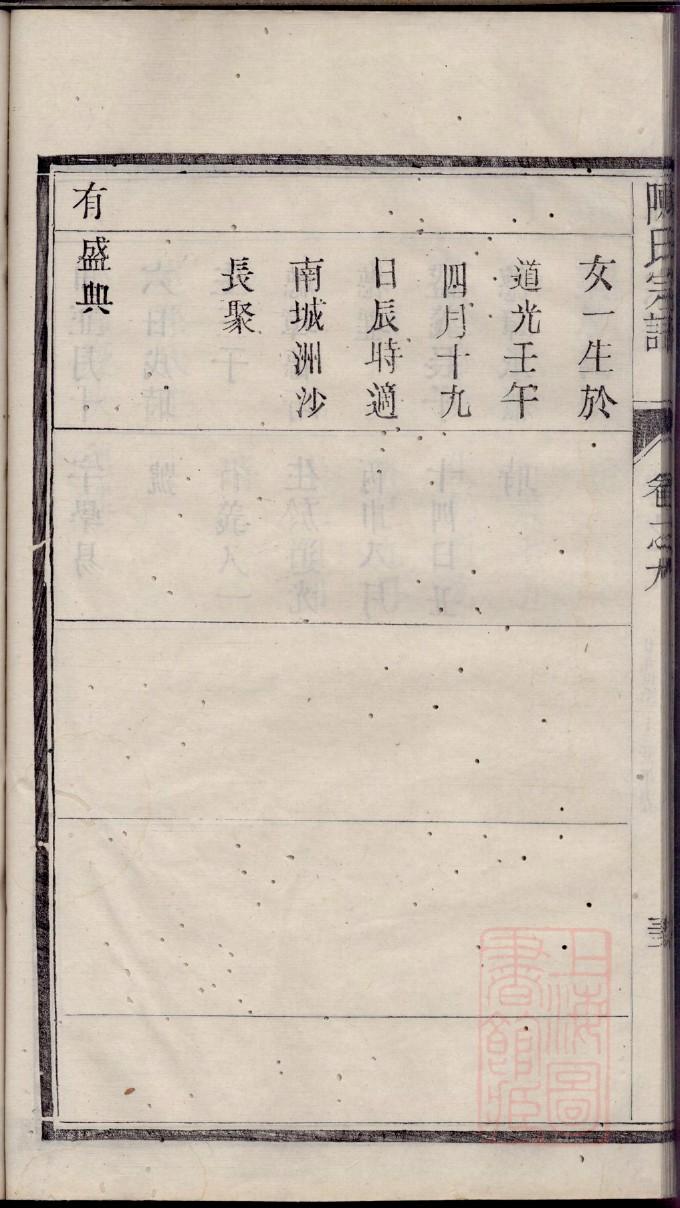 陳氏宗譜
卷之九
女一生於
道光壬午
四月十九
日辰時適
南城洲沙
長聚
有盛典
上海圖
書館藏